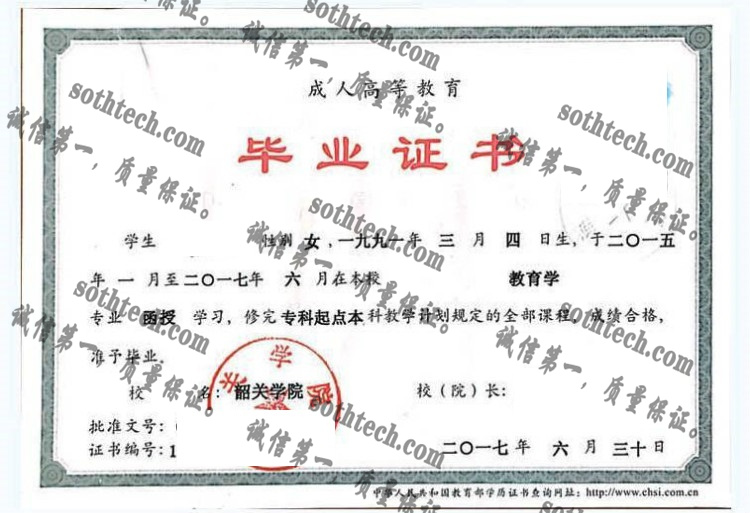 成人高等教育
毕业证书
学生 性别 女,一九九一年 三 月 四 日生,于二〇一五
年 一 月至二〇一七年 六 月在本校 教育学
专业 函授 学习,修完专科起点本科教学计划规定的全部课程,成绩合格,
准予毕业.
校 名: 韶关学院 校(院)长:
批准文号:
证书编号:1
二〇一七年 六 月 三十日
中华人民共和国教育部学历证书查询网址: http://www.chsi.com.cn
关 学 院
sothtech.com
诚信第一,质量保证。
sothtech.com
诚信第一,质量保证。
sothtech.com
诚信第一,质量保证。
sothtech.com
诚信第一,质量保证。
sothtech.com
诚信第一,质量保证。
sothtech.com
诚信第一,质量保证。
sothtech.com
诚信第一,质量保证。
sothtech.com
sothtech.com